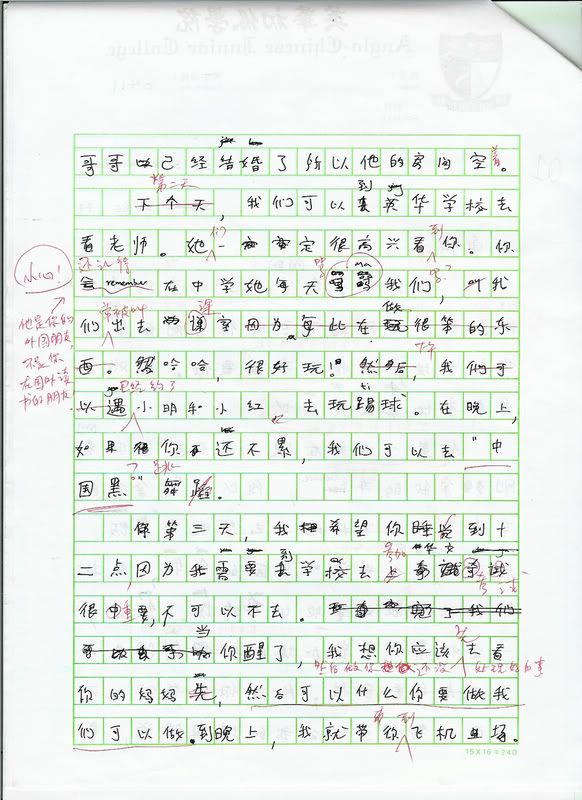 英華初級學院
Anglo-Chinese Junior College
哥哥已经结婚了所以他的房间空着。
第二天
下个天，我们可以到英华学校去
看老师。她们一定很高兴看到你。你
还记得
会 remember 在中学她每天骂我们，叫我
小心！
们出去课室因为每此在做很笨的东
西。哈哈，很好玩！然后，我们可
已经约了
以遇小明和小红去玩踢球。在晚上，
如果你还不累，我们可以去"中
国黑"舞蹈。
他是你的
外国朋友，
不是你
在国外读
书的朋友！
第三天，我希望你睡觉到十
二点，因为我需要到学校去
很重要，不可以不去。
当你醒了，我想你应该先去看
然后做你还没处理好的事
你的妈妈先，然后可以什么你要做我
们可以做。到晚上，我就带你到飞机场。
15 X 16 = 240